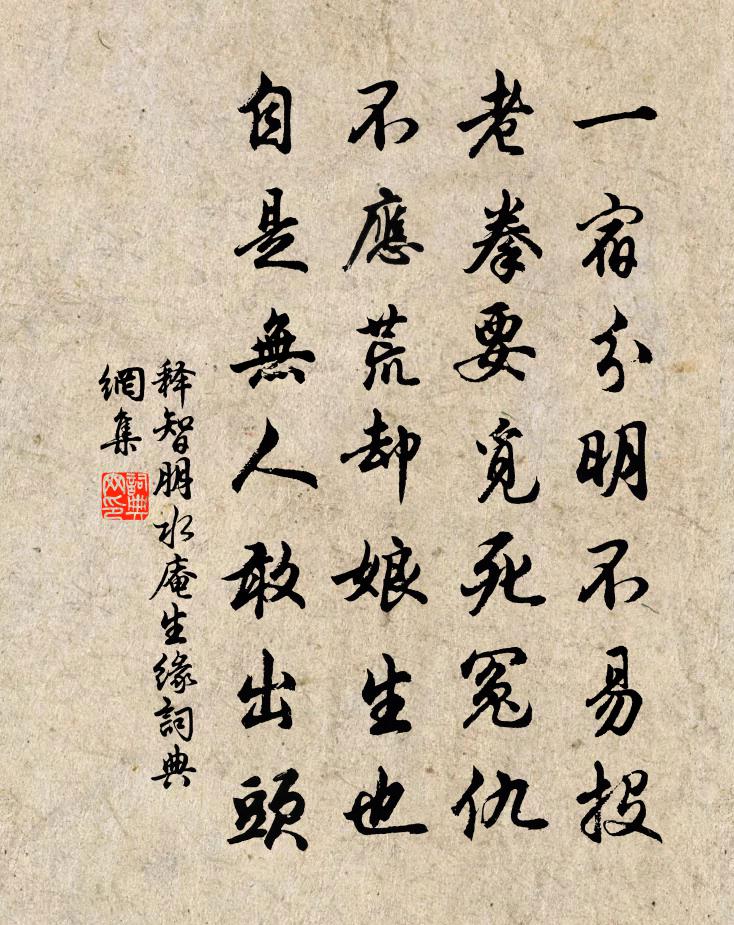 一宿分明不易投
老拳要覓死冤仇
不應荒却娘生也
自是無人敢出頭
释智朋水庵生缘詞典
網集
詞典網印